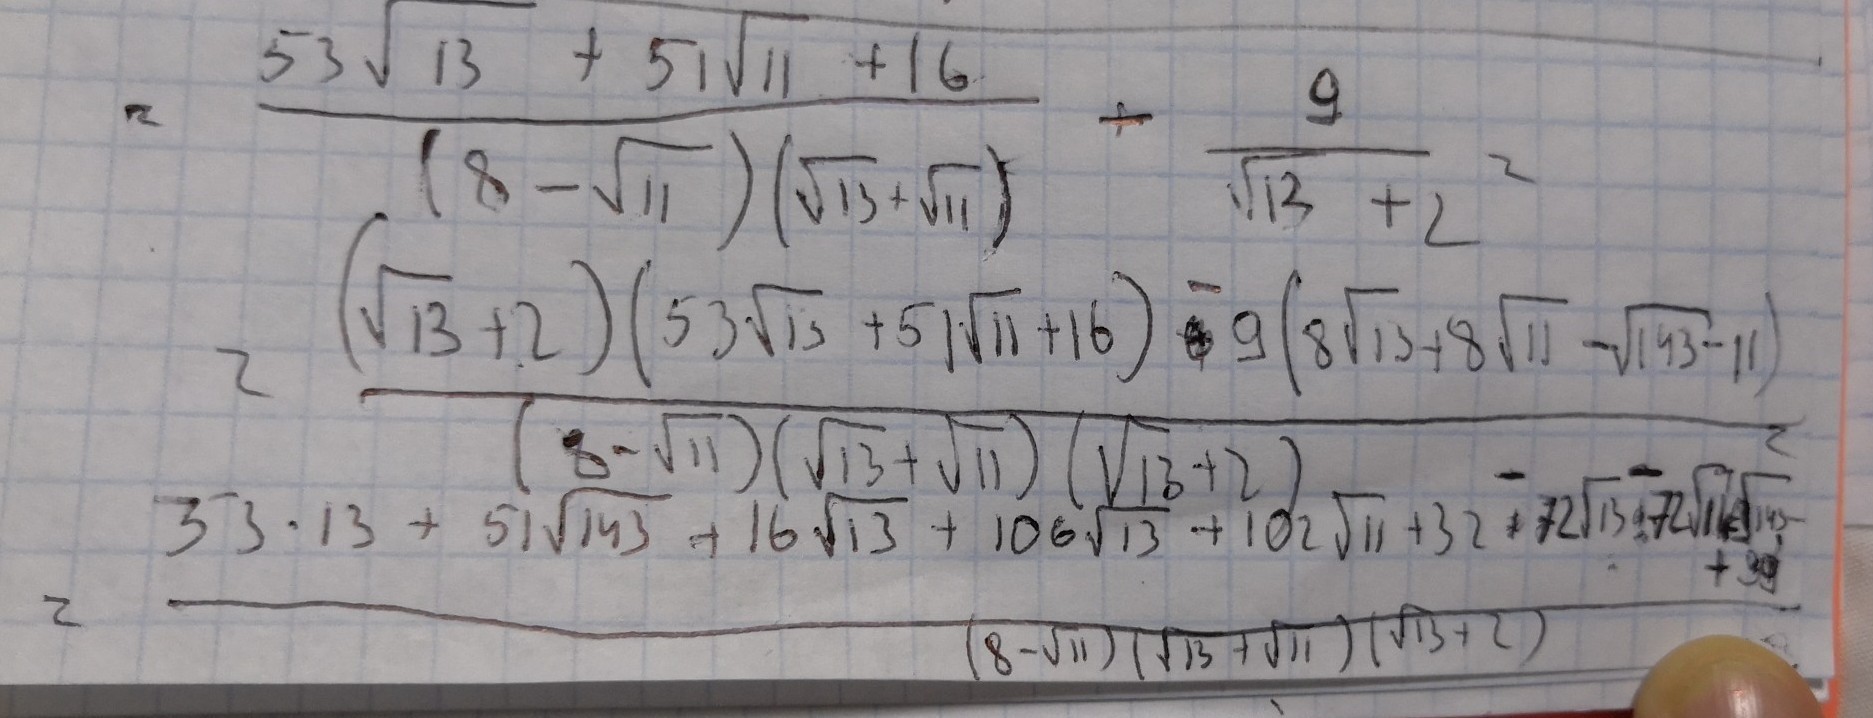 = (53√13 + 51√11 + 16) / ((8 - √11)(√13 + √11)) + 9 / (√13 + 2) =
= ((√13 + 2)(53√13 + 51√11 + 16) - 9(8√13 + 8√11 - √143 - 11)) / ((8 - √11)(√13 + √11)(√13 + 2)) =
= (53 · 13 + 51√143 + 16√13 + 106√13 + 102√11 + 32 - 72√13 - 72√11 + 99) / ((8 - √11)(√13 + √11)(√13 + 2))